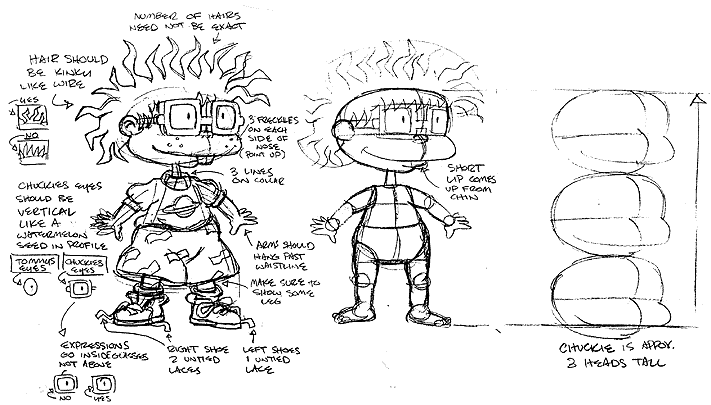 NUMBER OF HAIRS
NEED NOT BE EXACT
HAIR SHOULD
BE KINKY
LIKE WIRE
YES
NO
3 FRECKLES
ON EACH
SIDE OF
NOSE
(POINT UP)
3 LINES
ON COLLAR
SHORT
LIP COMES
UP FROM
CHIN
CHUCKIES EYES
SHOULD BE
VERTICAL
LIKE A
WATERMELON
SEED IN PROFILE
TOMMYS
EYES
CHUCKIES
EYES
ARMS SHOULD
HANG PAST
WAISTLINE
MAKE SURE TO
SHOW SOME
LEG
EXPRESSIONS
GO INSIDE GLASSES
NOT ABOVE
NO
YES
RIGHT SHOE
2 UNTIED
LACES
LEFT SHOES
1 UNTIED
LACE
CHUCKIE IS APPX.
3 HEADS TALL